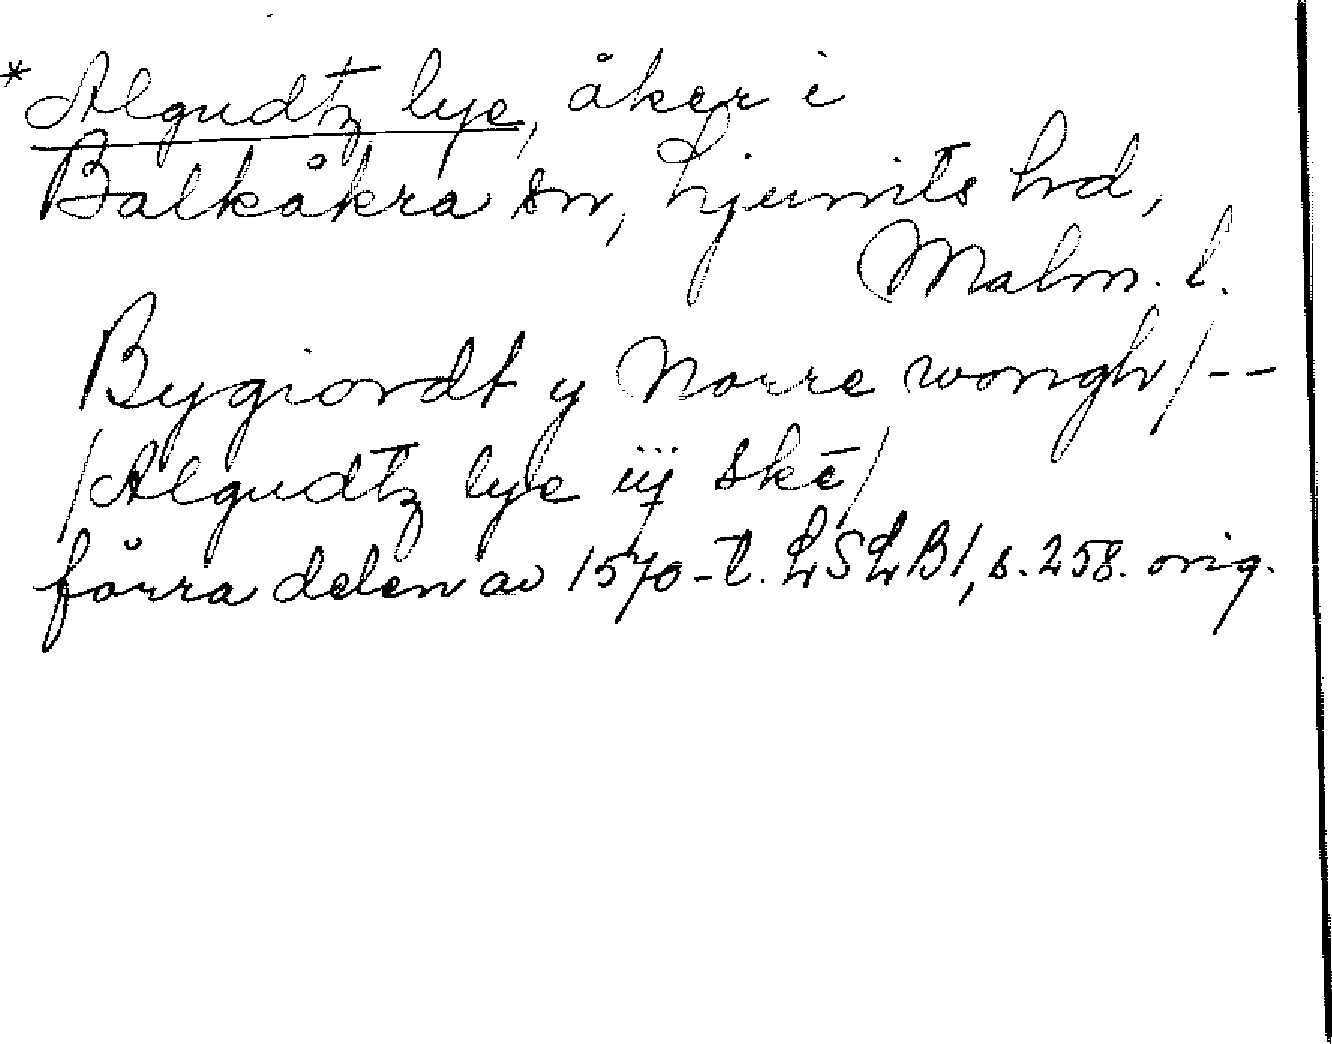 *Algudtz lye, åker i
Balkåkra sn, Ljunits hd,
Malm. l.
Bygiordt y Norre wongh/--
/Algudtz lye iij skē/
förra delen av 1570-t. LSLB1, s. 258. orig.